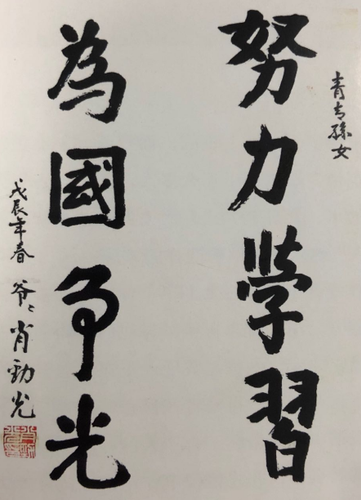 青孫女
努力學習
為國争光
戊辰年春 爷〻 肖劲光